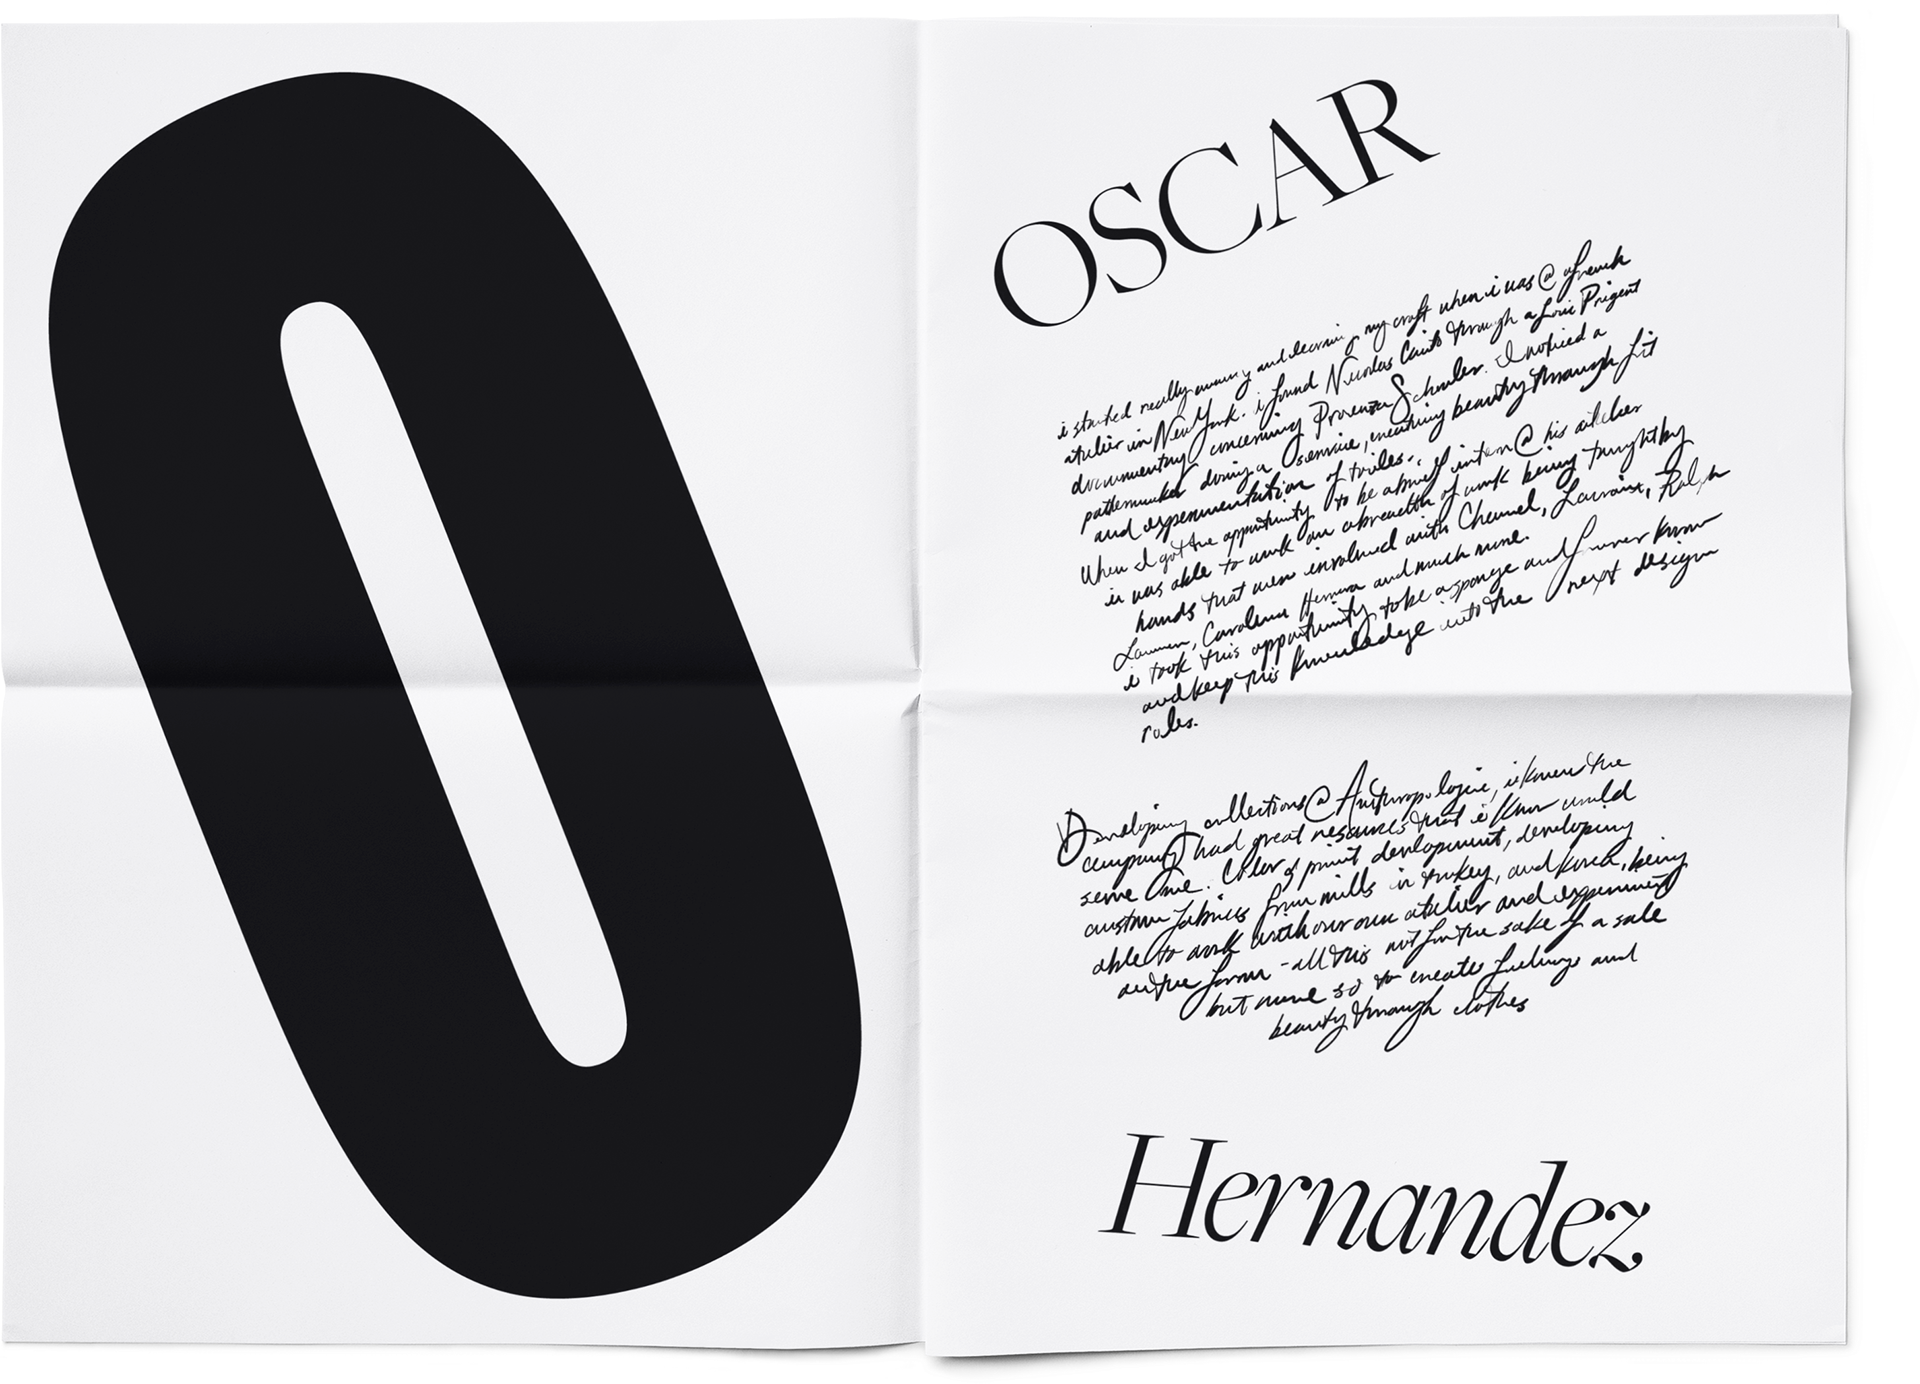 O
OSCAR
i started really and learning my craft when i was @ a French
atelier in New York. i found Nicolas Caito through a Loic Prigent
documentary concerning Proenza Schouler. I noticed a
patternmaker doing a service, creating beauty through fit
and experimentation of toiles.
When I got the opportunity to be able intern @ his atelier
i was able to work on a breadth of work being taught by
hands that were involved with Chanel, Lacroix, Ralph
Lauren, Carolina Herrera and much more.
i took this opportunity to be a sponge and forever know
and keep this knowledge into the next design
roles.
Developing collections @ Anthropologie, i knew the
company had great resources that i knew would
serve me. Color & print development, developing
custom fabrics from mills in turkey, and korea, being
able to work with our own atelier and experiment
on the form - all this not for the sake of a sale
but more so to create feelings and
beauty through clothes
Hernandez